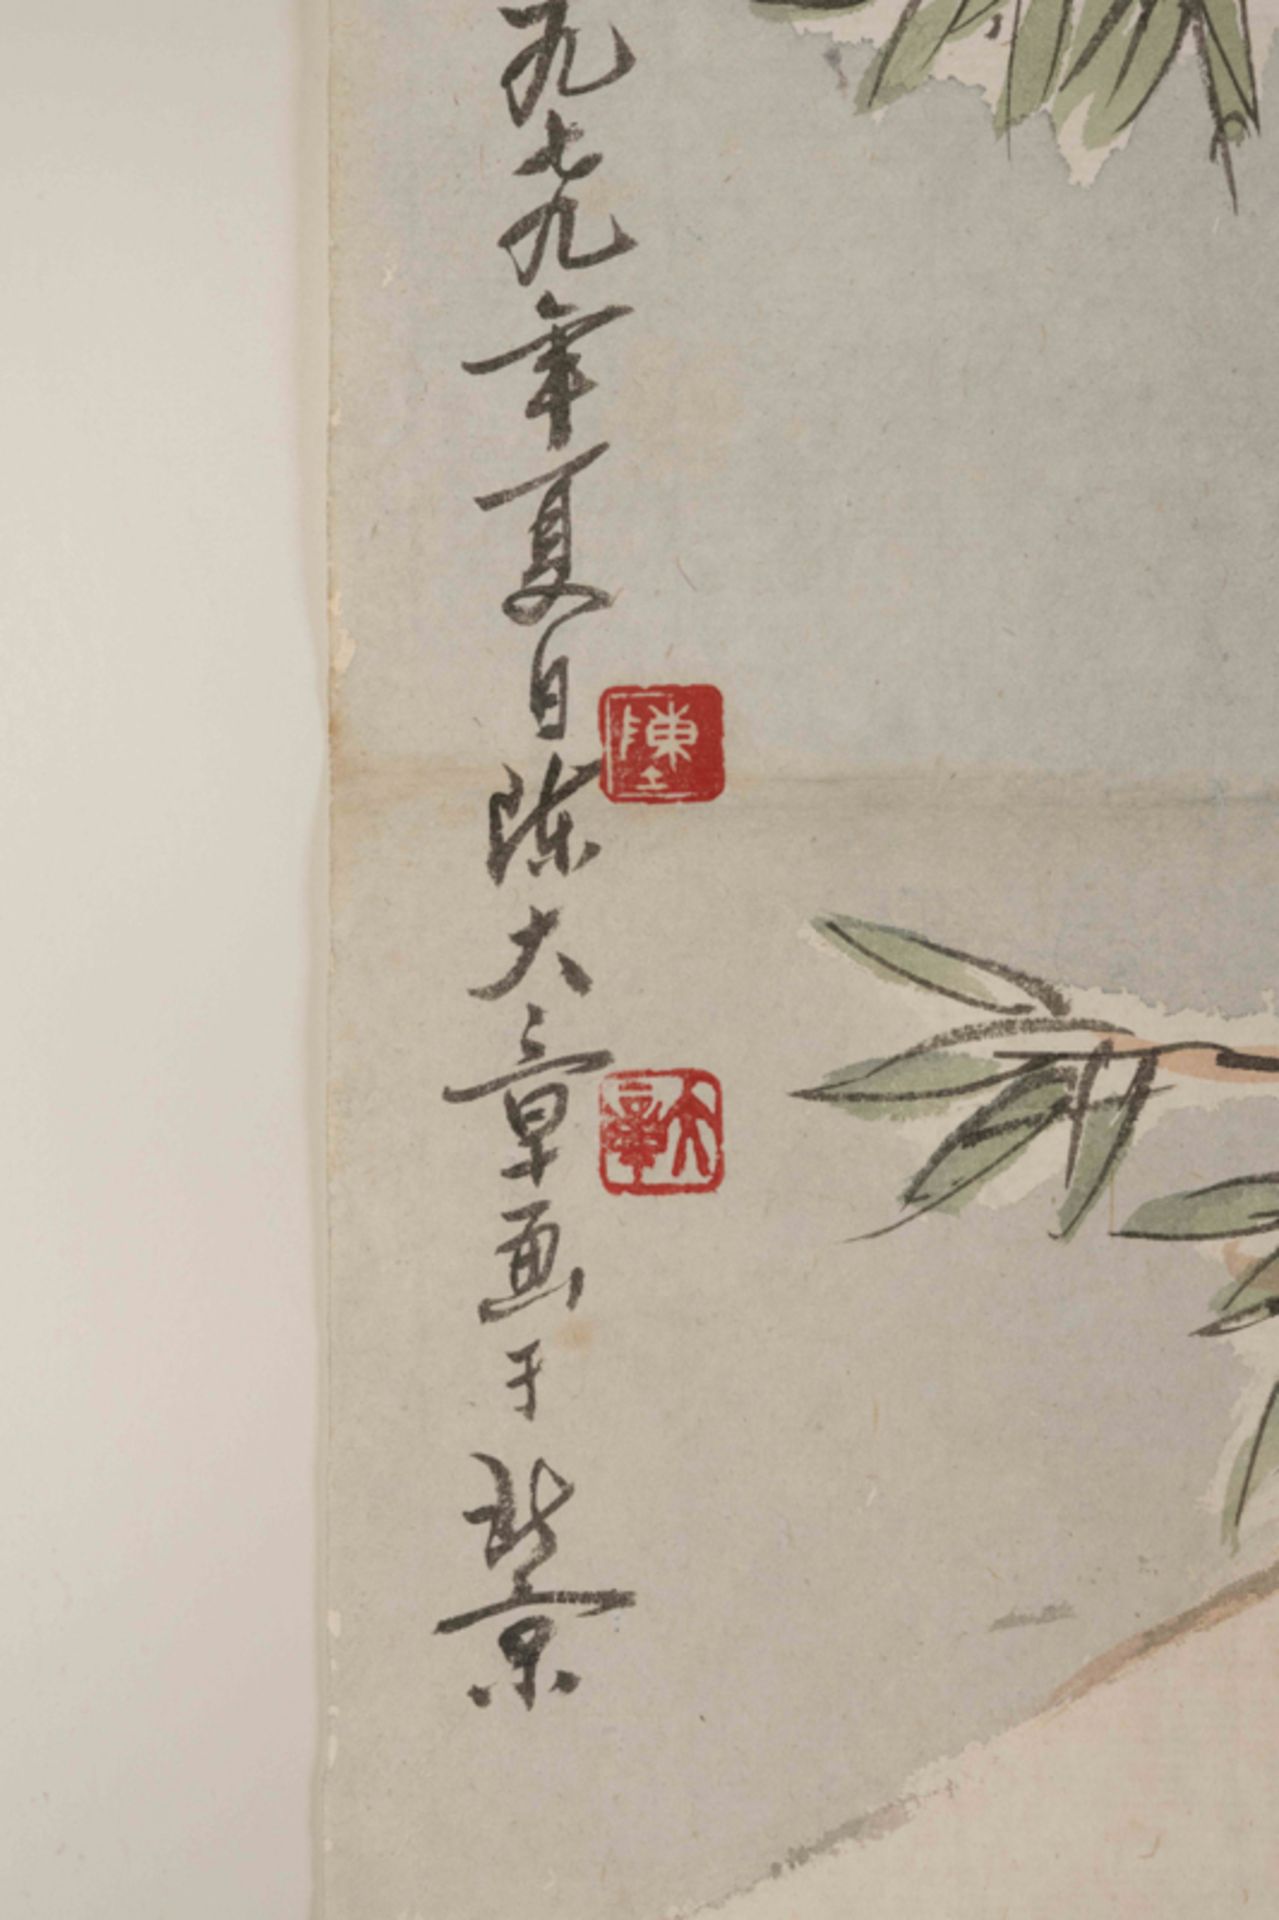 九七九年夏日陈大章画于北京
陳
大章